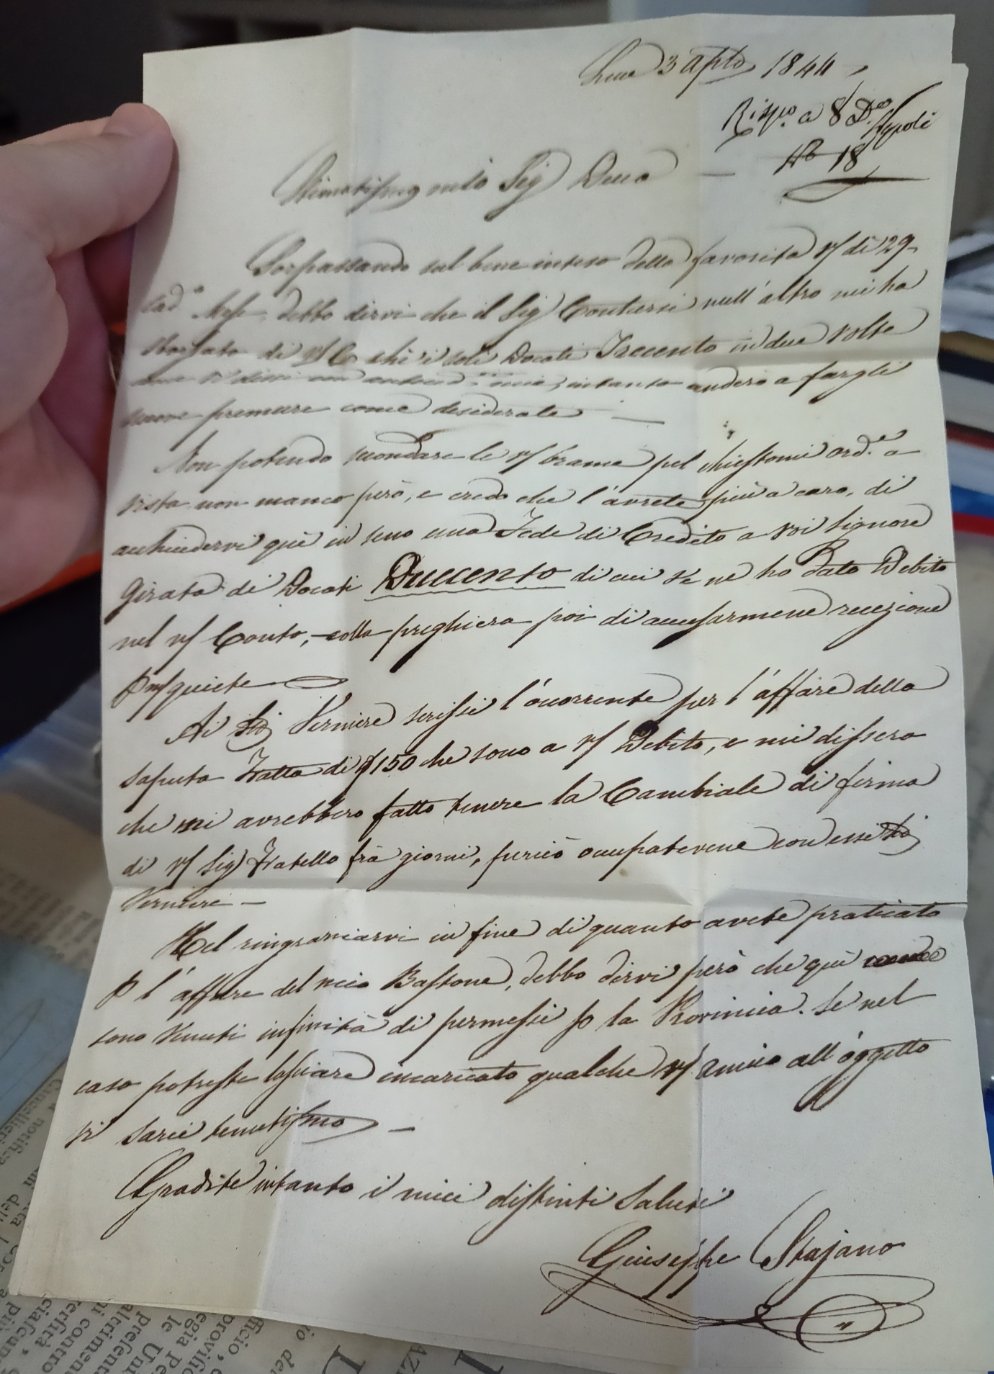 Lecce 3 Agto 1844
Rispo. a 8 Do.
Napoli
No 18
Stimatissmo mio Sig Duca
Sorpassando sul bene inteso della favorita vs di 29
cado Mese, debbo dirvi che il Sig Contiersi null'altro mi ha
sborsato di vs C che i soli Docati Trecento in due volte
come vi dissi mia; intanto anderò a fargli
nuove premure come desiderate
Non potendo secondare le vs brame pel chiestomi ord.e a
vista non manco però, e credo che l'avrete più a caro, di
acchiudervi quì in seno una Fede di Credito a voi Signore
girata di Docati Duecento di cui ve ne ho dato Debito
nel vs Conto, colla preghiera poi di accusarmene recezione
P ms quiete
Ai SSri Verniere scrissi l'occorrente per l'affare della
saputa Tratta di 150 che sono a vs Debito, e mi dissero
che mi avrebbero fatto tenere la Cambiale di firma
di vs Sig Fratello frà giorni, perciò occupatevene con essi SSri
Verniere
Nel ringraziarvi in fine di quanto avete praticato
P l'affare del mio Bastone, debbo dirvi però che quì
sono venuti infinità di permessi p la Provincia. Se nel
caso potreste lasciare incaricato qualche vs amico all'oggetto
vi sarei tenutissmo
Gradite intanto i miei distinti saluti
Giuseppe Stajano